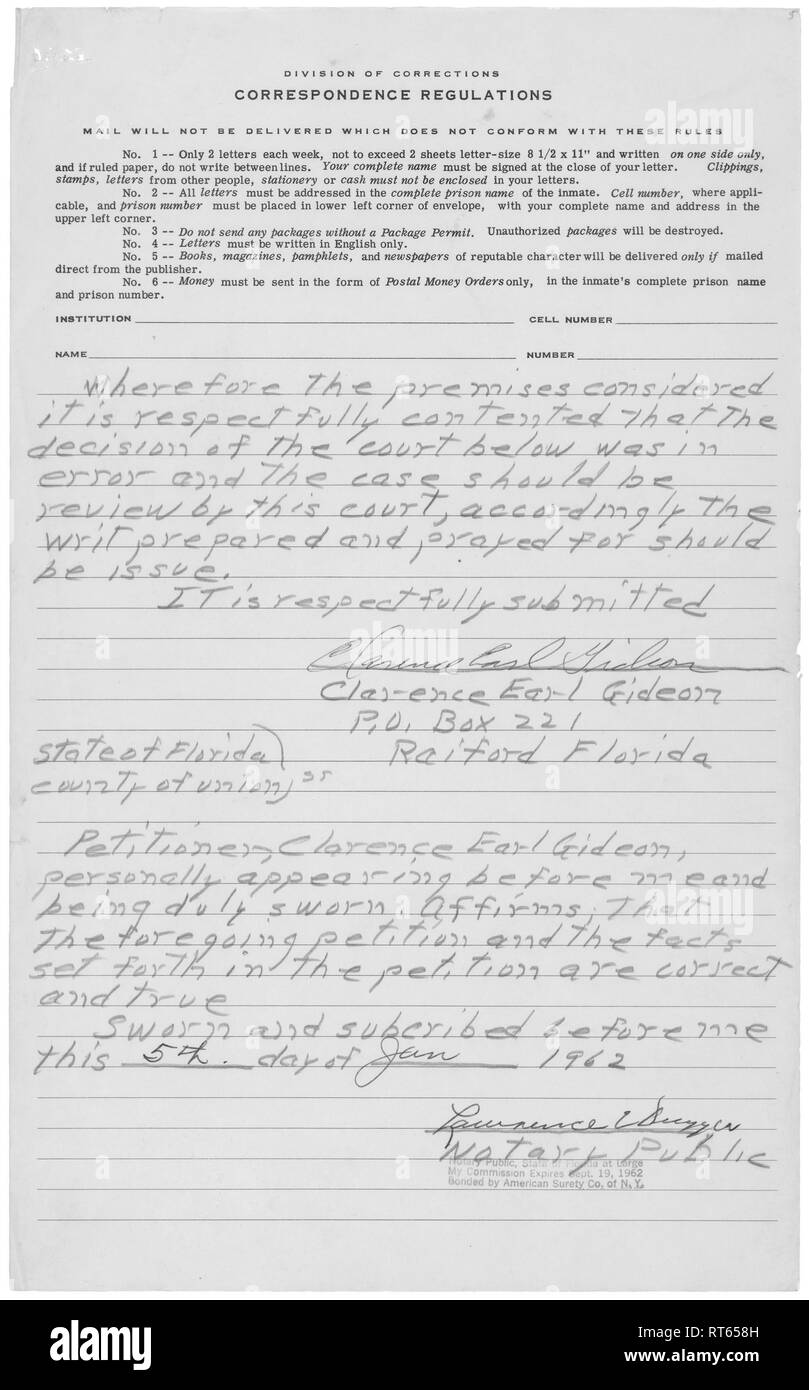 5
DIVISION OF CORRECTIONS
CORRESPONDENCE REGULATIONS
MAIL WILL NOT BE DELIVERED WHICH DOES NOT CONFORM WITH THESE RULES
No. 1 -- Only 2 letters each week, not to exceed 2 sheets letter-size 8 1/2 x 11" and written on one side only,
and if ruled paper, do not write between lines. Your complete name must be signed at the close of your letter. Clippings,
stamps, letters from other people, stationery or cash must not be enclosed in your letters.
No. 2 -- All letters must be addressed in the complete prison name of the inmate. Cell number, where appli-
cable, and prison number must be placed in lower left corner of envelope, with your complete name and address in the
upper left corner.
No. 3 -- Do not send any packages without a Package Permit. Unauthorized packages will be destroyed.
No. 4 -- Letters must be written in English only.
No. 5 -- Books, magazines, pamphlets, and newspapers of reputable character will be delivered only if mailed
direct from the publisher.
No. 6 -- Money must be sent in the form of Postal Money Orders only, in the inmate's complete prison name
and prison number.
INSTITUTION CELL NUMBER
NAME NUMBER
Wherefore the premises considered
it is respectfully contented that the
decision of the court below was in
error and the case should be
review by this court, accordingly the
writ prepared and prayed for should
be issue.
It is respectfully submitted
Clarence Earl Gideon
Clarence Earl Gideon
P.O. Box 221
State of Florida) Raiford Florida
county of union, ss
Petitioner, Clarence Earl Gideon,
personally appearing before me and
being duly sworn, Affirms, that
the foregoing petition and the facts
set forth in the petition are correct
and true
Sworn and subcribed before me
this 5th. day of Jan 1962
Lawrence Dugger
Notary Public
Notary Public, State of Florida at Large
My Commission Expires Sept. 19, 1962
Bonded by American Surety Co. of N. Y.
alamy
Image ID: RT658H
www.alamy.com